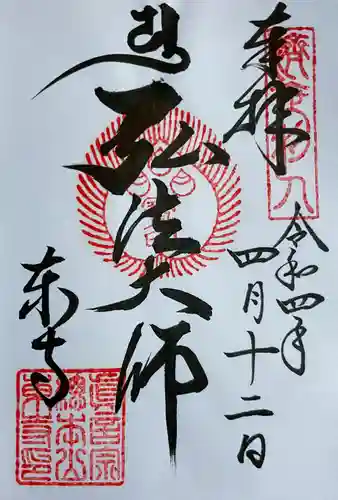 奉拝
令和四年
四月十二日
弘法大師
東寺
真言宗
総本山
東寺印